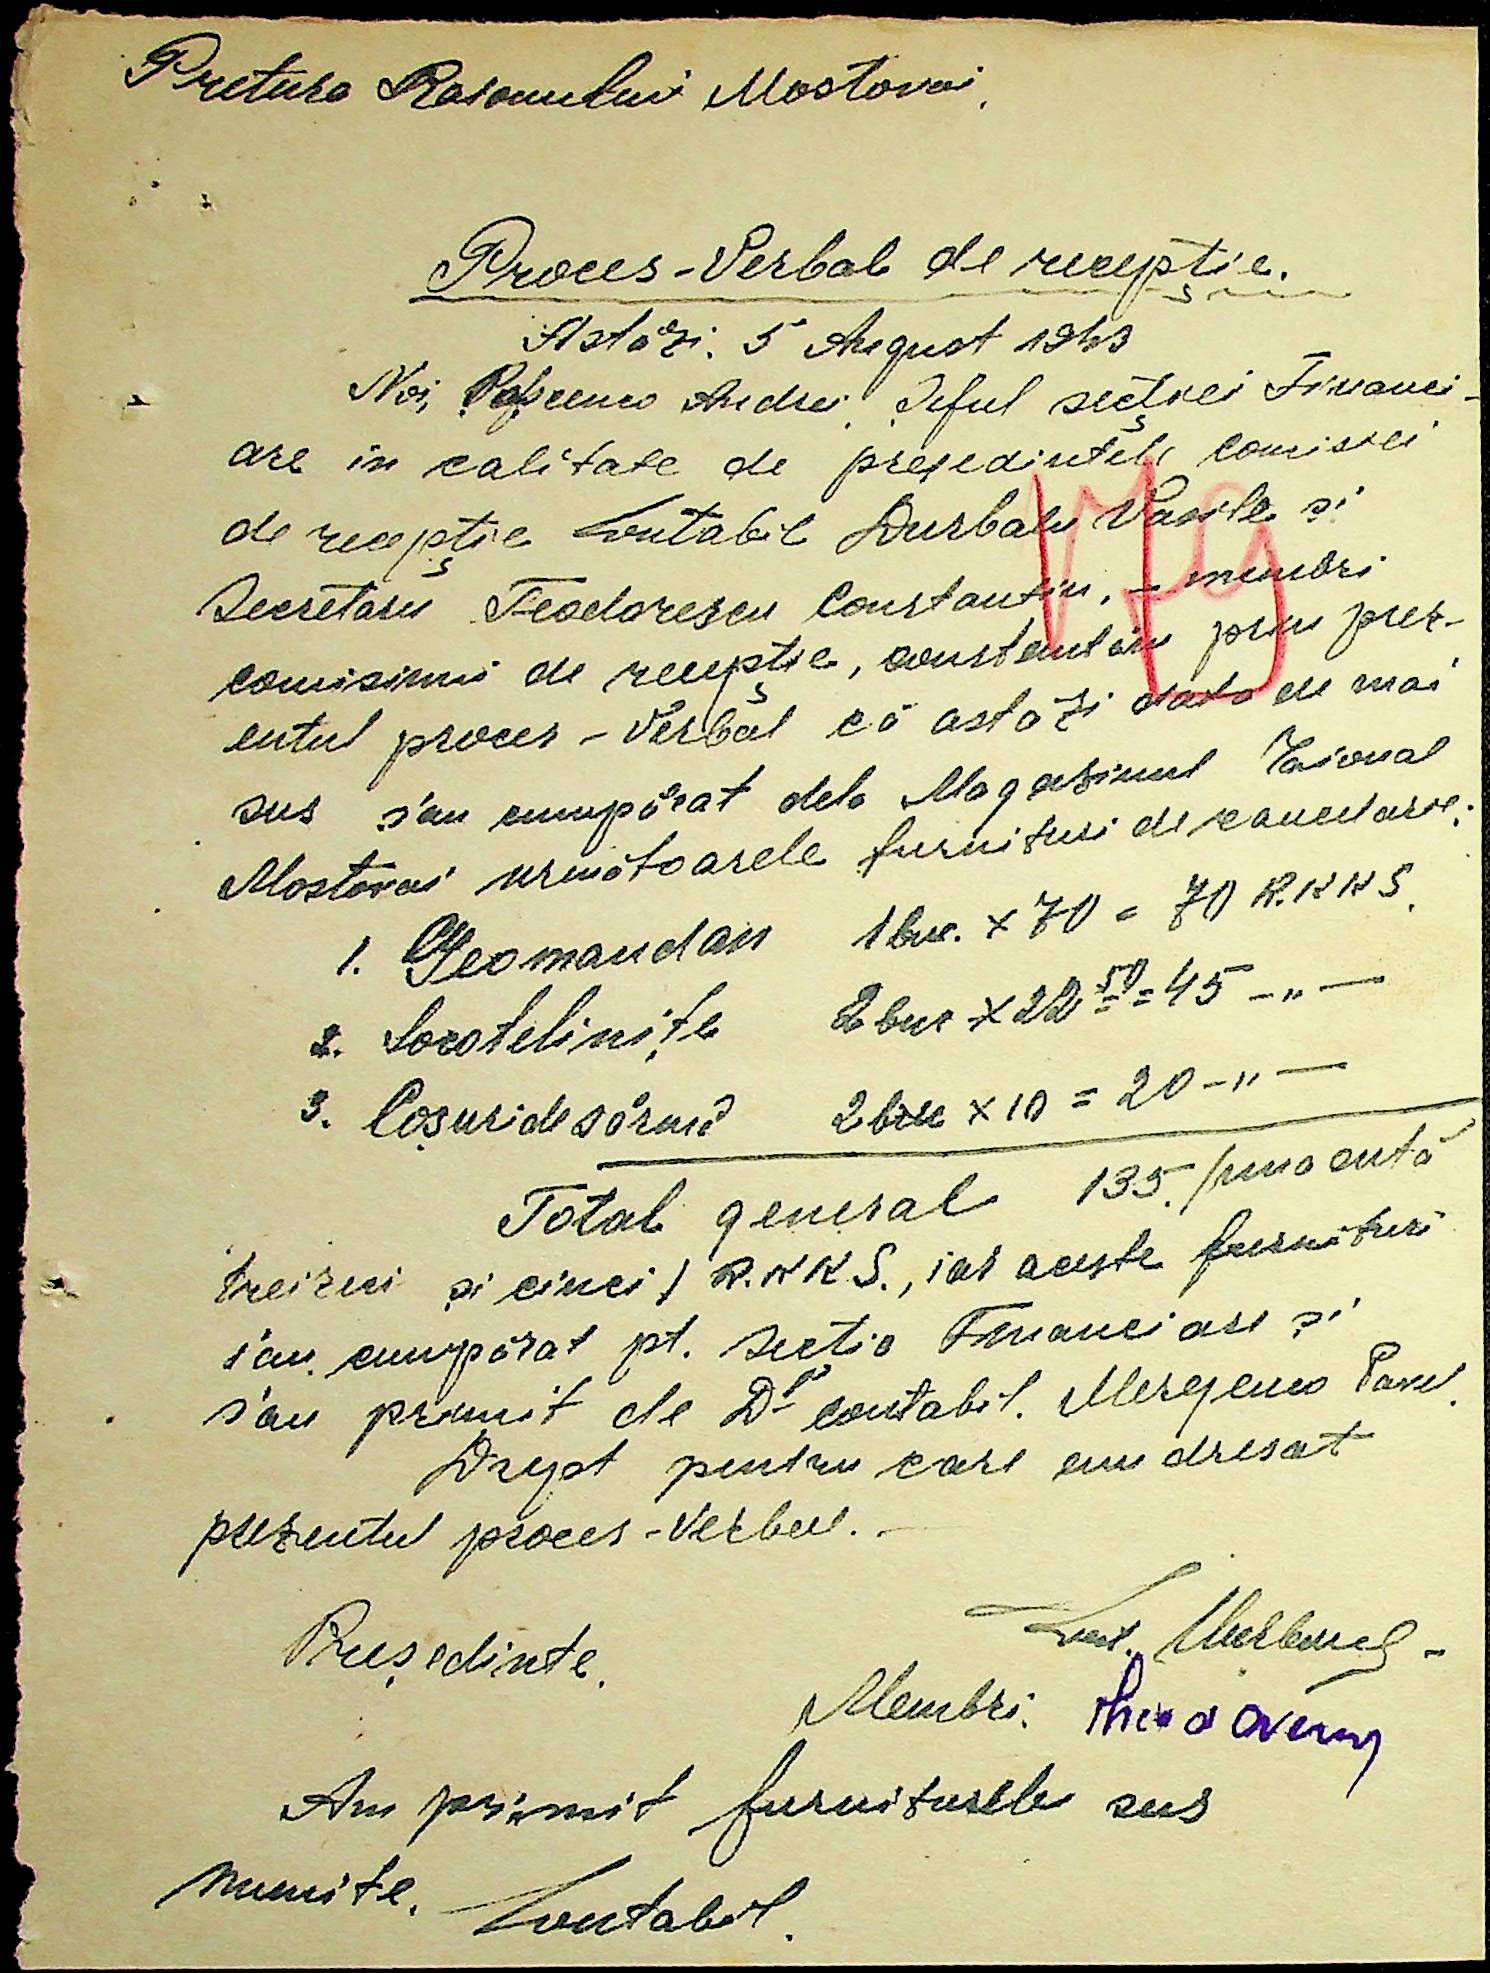 Pretura Raionului Mostovoi.
Proces-Verbal de recepţie.
Astăzi. 5 August 1943
Noi, Andrei. Şeful secţiei Financi-
are in calitate de preşedintele comisiei
de recepţie Contabil Durbalu Vasile şi
Secretaru Feodorescu Constantin, - membri
comisiuni de recepţie, constatăm prin prez-
entul proces-Verbal că astăzi data de mai
sus s'au cumpărat dela Magazinul Raional
Mostovoi următoarele furnituri de cancelarie:
1. Gheomandan 1 buc. x 70 = 70 R.K.K.S.
2. Socotelniţe 2 buc x 22 50 = 45 -„-
3. Coşuri de sârmă 2 buc x 10 = 20 -„-
Total general 135. /una sută
treizeci şi cinci/ R.K.K.S., iar aceste furnituri
s'au cumpărat pt. Secţia Financiare şi
s'au primit de Dl contabil. Mergenco Pavel.
Drept pentru care am dresat
prezentul proces-Verbal. -
Preşedinte.
Cont.
Membri.
Am primit furniturile sus
numite. Contabil.